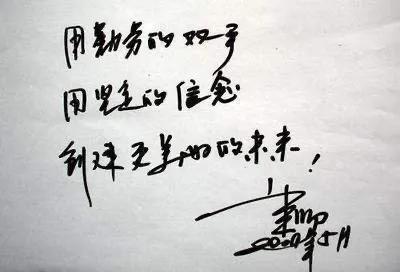 用勤劳的双手
用坚定的信念
创建更美好的未来!
5月